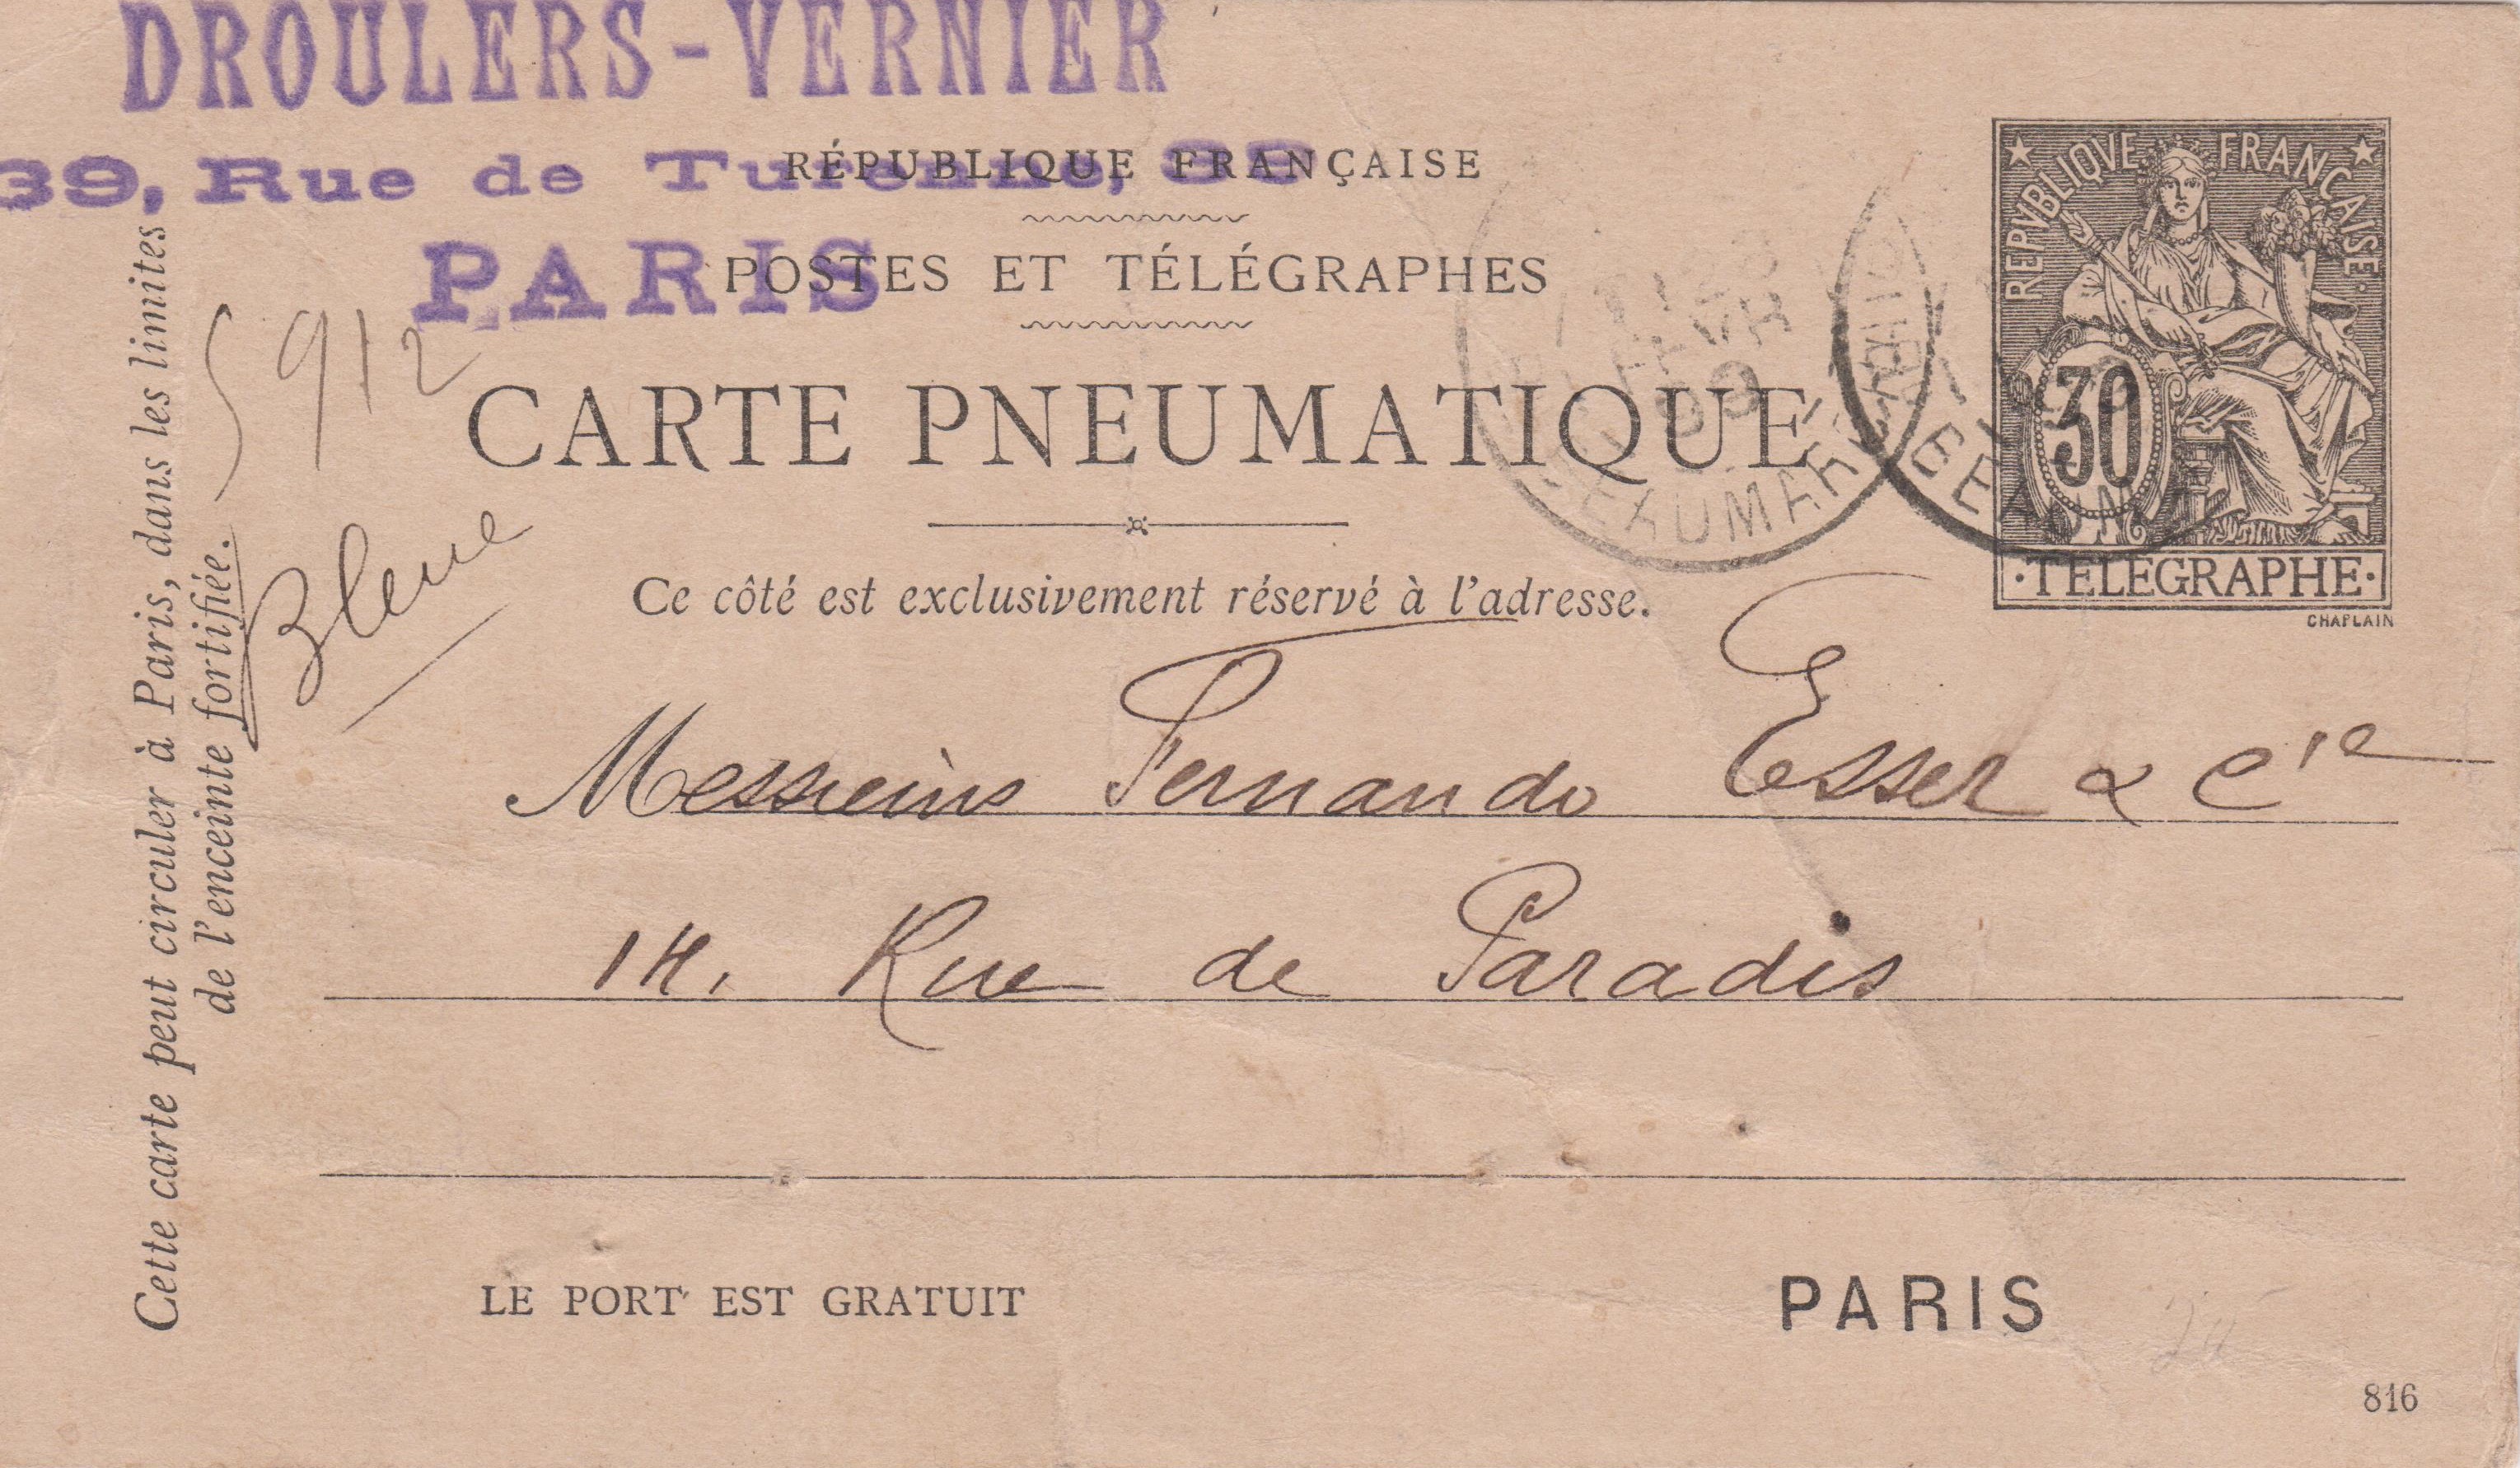 DROULERS-VERNIER
39, Rue de Turenne, 39
PARIS
RÉPUBLIQUE FRANÇAISE
POSTES ET TÉLÉGRAPHES
CARTE PNEUMATIQUE
Ce côté est exclusivement réservé à l'adresse.
REPVBLIQVE FRANÇAISE
30
TELEGRAPHE
CHAPLAIN
BEAUMAR
FEVR
99
BEAUM
Cette carte peut circuler à Paris, dans les limites
de l'enceinte fortifiée.
5912
Bleue
Messieurs Fernando Esser & Cie
14, Rue de Paradis
LE PORT EST GRATUIT
PARIS
816